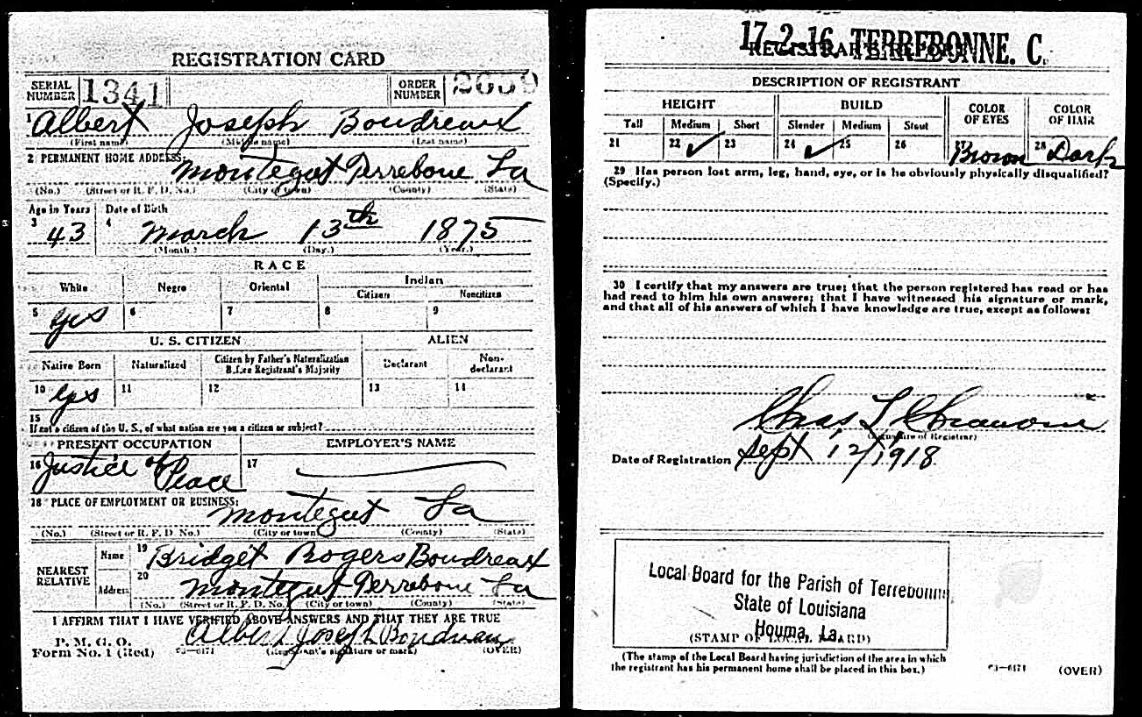 REGISTRATION CARD
SERIAL NUMBER 1341 ORDER NUMBER 2659
1 Albert Joseph Boudreaux
(First name) (Middle name) (Last name)
2 PERMANENT HOME ADDRESS:
Montegut Terrebone La
(No.) (Street or R. F. D. No.) (City or town) (County) (State)
Age in Years Date of Birth
3 43 4 March 13th 1875
(Month.) (Day.) (Year.)
RACE
White Negro Oriental Indian
Citizen Noncitizen
5 yes 6 7 8 9
U. S. CITIZEN ALIEN
Native Born Naturalized Citizen by Father's Naturalization Before Registrant's Majority Declarant Non-declarant
10 yes 11 12 13 14
15
If not a citizen of the U. S., of what nation are you a citizen or subject?
PRESENT OCCUPATION EMPLOYER'S NAME
16 Justice of Peace 17
18 PLACE OF EMPLOYMENT OR BUSINESS:
Montegut La
(No.) (Street or R. F. D. No.) (City or town) (County) (State)
NEAREST RELATIVE
Name 19 Bridget Rogers Boudreax
Address 20 Montegut Terrebone La
(No.) (Street or R. F. D. No.) (City or town) (County) (State)
I AFFIRM THAT I HAVE VERIFIED ABOVE ANSWERS AND THAT THEY ARE TRUE
Albert Joseph Boudreau
P. M. G. O.
Form No. 1 (Red) 03—6171 (Registrant's signature or mark) (OVER)
17-2-16 TERREBONNE. C.
REGISTRAR'S REPORT
DESCRIPTION OF REGISTRANT
HEIGHT BUILD COLOR OF EYES COLOR OF HAIR
Tall Medium Short Slender Medium Stout
21 22 ✓ 23 24 ✓ 25 26 27 Brown 28 Dark
29 Has person lost arm, leg, hand, eye, or is he obviously physically disqualified?
(Specify.)
30 I certify that my answers are true; that the person registered has read or has
had read to him his own answers; that I have witnessed his signature or mark,
and that all of his answers of which I have knowledge are true, except as follows:
Chas L
(Signature of Registrar)
Date of Registration Sept 12/1918
Local Board for the Parish of Terrebonne
State of Louisiana
Houma, La.
(STAMP OF LOCAL BOARD)
(The stamp of the Local Board having jurisdiction of the area in which
the registrant has his permanent home shall be placed in this box.)
03—6171 (OVER)